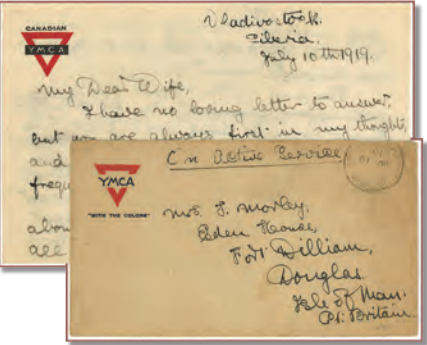 CANADIAN
YMCA
Vladivostock.
Siberia.
July 10th 1919.
My Dear Wife,
I have no loving letter to answer,
but you are always first in my thoghts,
and
frequ
abou
all
On Active Service
YMCA
"WITH THE COLORS"
Mrs. J. Morley,
Eden House,
Fort William,
Douglas.
Isle of Man.
Gt. Britain.